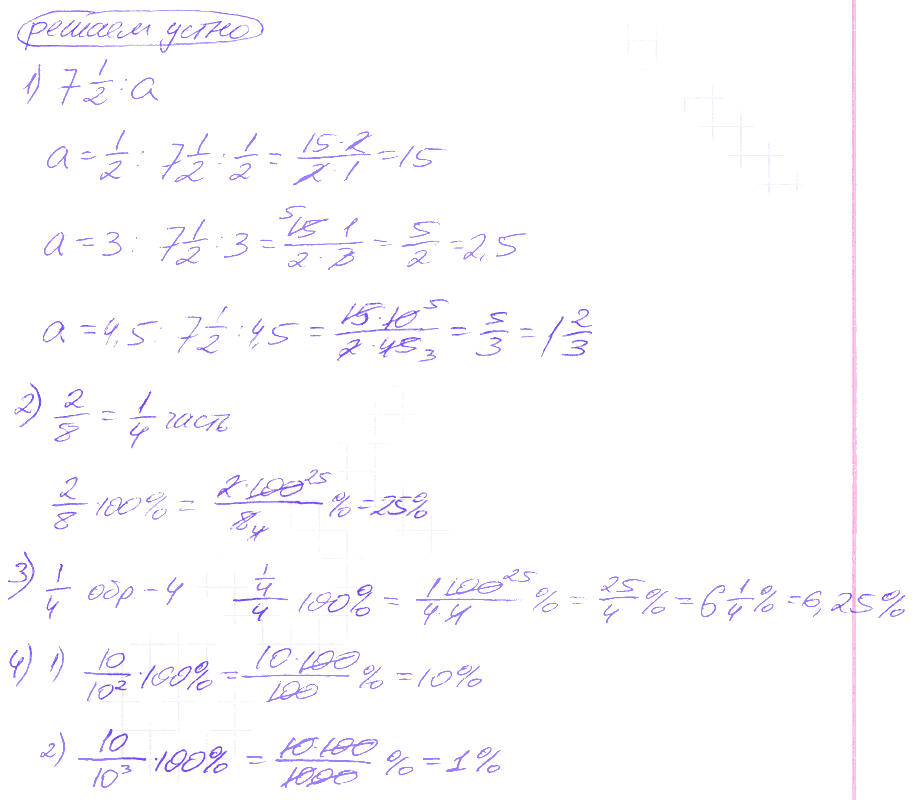 решаем устно
1) 7 1/2 : a
a = 1/2 : 7 1/2 : 1/2 = (15·2)/(2·1) = 15
a = 3 : 7 1/2 : 3 = (15 5 · 1)/(2·3) = 5/2 = 2,5
a = 4,5 : 7 1/2 : 4,5 = (15·10 5)/(2·45 3) = 5/3 = 1 2/3
2) 2/8 = 1/4 часть
2/8 · 100% = (2·100 25)/(8 4) % = 25%
3) 1/4 обр – 4 (1/4)/4 · 100% = (1·100 25)/(4·4) % = 25/4 % = 6 1/4 % = 6,25%
4) 1) 10/10² · 100% = (10·100)/100 % = 10%
2) 10/10³ · 100% = (10·100)/1000 % = 1%